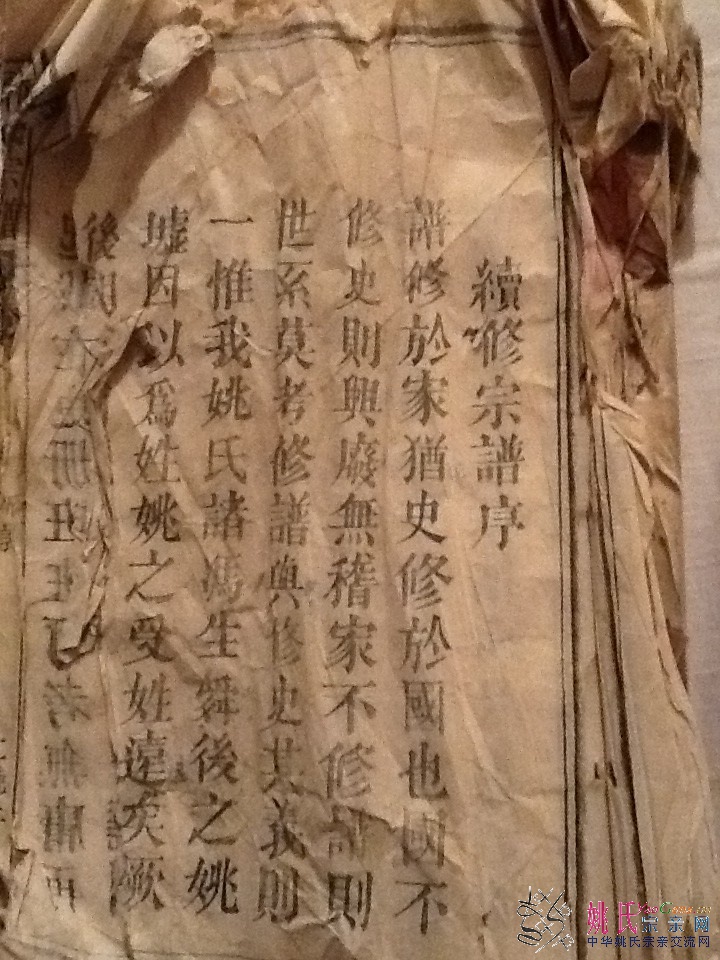 續修宗譜序
譜修於家猶史修於國也國不
修史則興廢無稽家不修譜則
世系莫考修譜與修史其義則
一惟我姚氏諸馮生舜後之姚
墟因以爲姓姚之受姓遠矣厥
後
冊班班可考無庸再
姚氏宗亲网
中华姚氏宗亲交流网